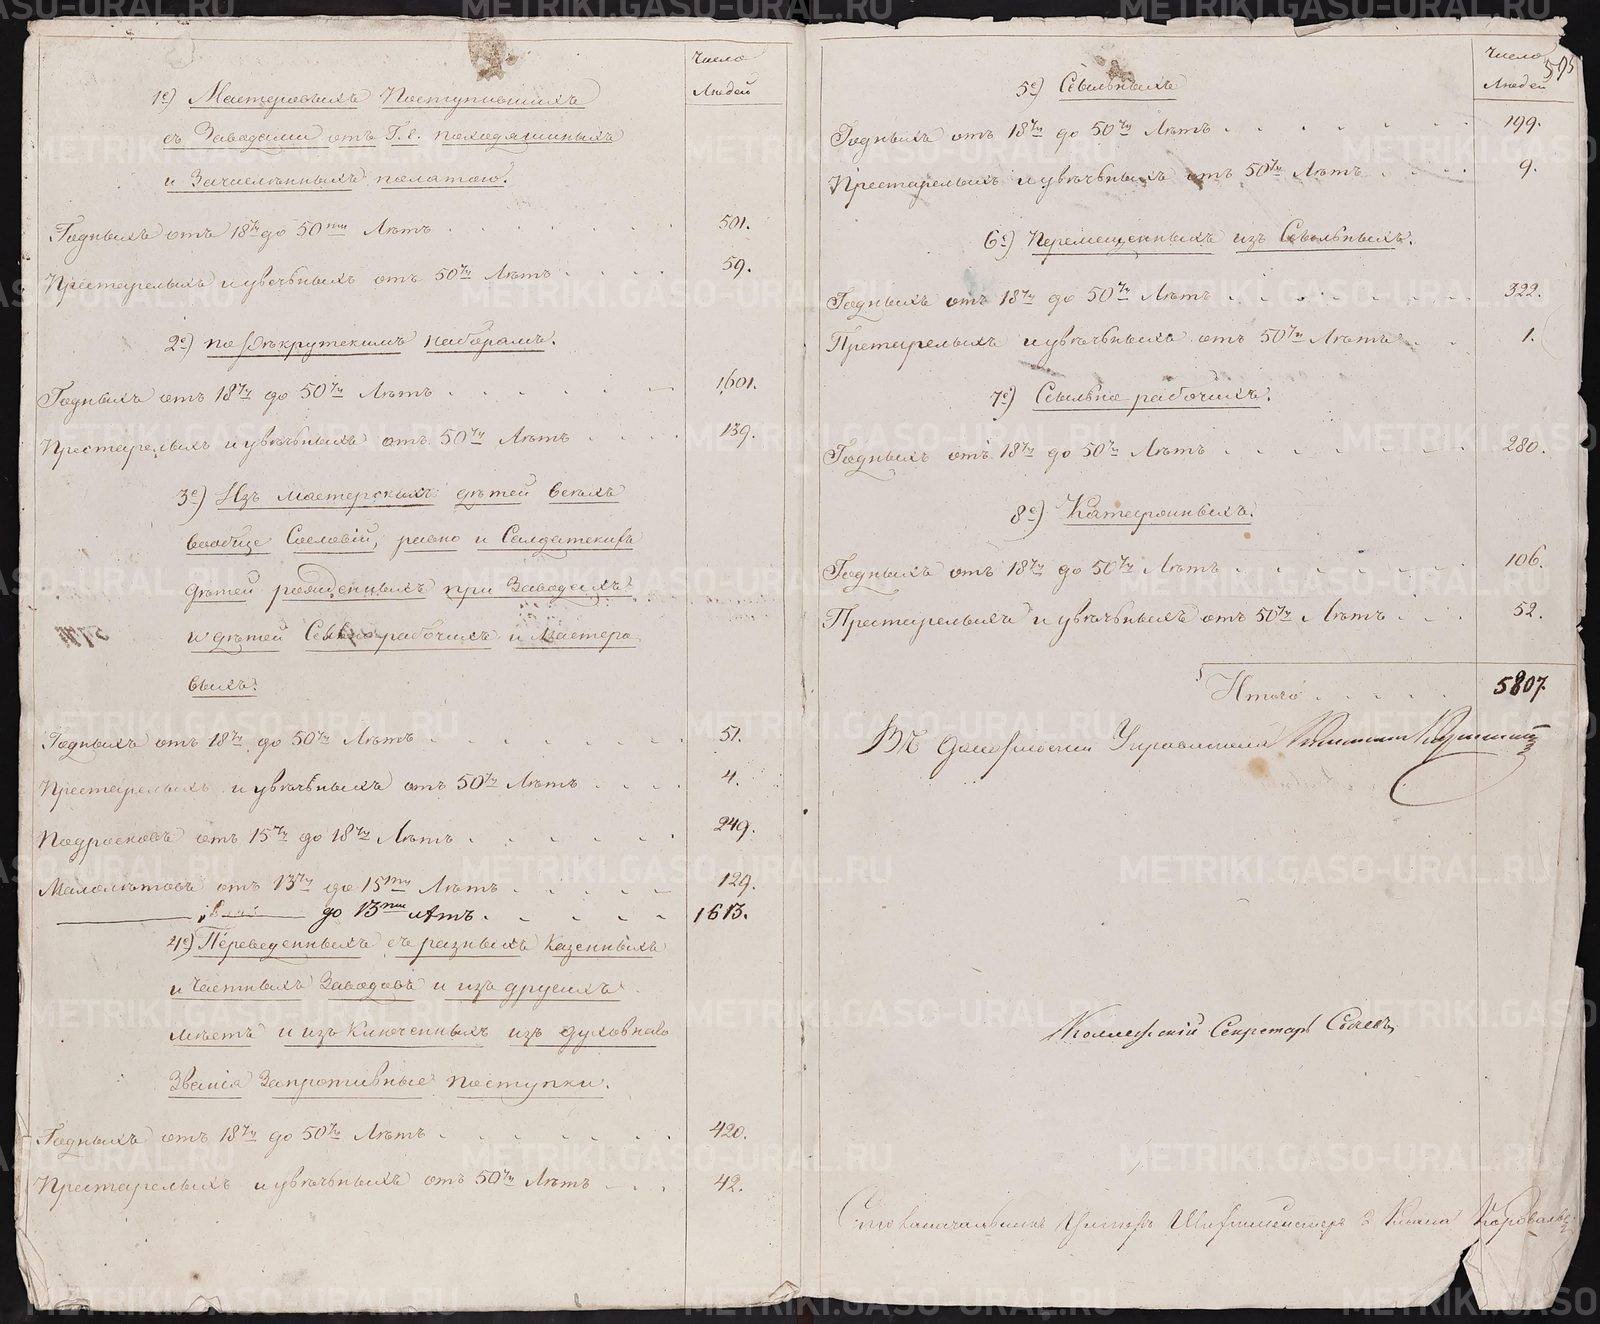 Число
Людей
1е) Мастеровыхъ Поступившихъ
съ Заводами отъ Г. г. походяшиныхъ
и Зачисленныхъ палатою.
Годныхъ отъ 18ти до 50ти Лѣтъ 501.
Престарелыхъ и увѣчьныхъ отъ 50ти Лѣтъ 59.
2е) по рѣкрутскимъ наборамъ.
Годныхъ отъ 18ти до 50ти Лѣтъ 1601.
Престарелыхъ и увѣчьныхъ отъ 50ти Лѣтъ 139.
3е) Изъ мастерскихъ дѣтей всехъ
вообще Сословій, равно и Салдатскихъ
дѣтей рожденныхъ при Заводехъ
и дѣтей Ссыльно рабочихъ и Мастеро
выхъ.
Годныхъ отъ 18ти до 50ти Лѣтъ 51.
Престарелыхъ и увѣчьныхъ отъ 50ти Лѣтъ 4.
Подросковъ отъ 15ти до 18ти Лѣтъ 249.
Малолѣтовъ отъ 13ти до 15ти Лѣтъ 129.
до 13ти лѣтъ 1613.
4е) Переведенныхъ съ разныхъ казенныхъ
и Частныхъ Заводовъ и изъ другихъ
мѣстъ и изъ Ключенныхъ изъ духовнаго
Званія Запротивные поступки.
Годныхъ отъ 18ти до 50ти Лѣтъ 420.
Престарелыхъ и увѣчьныхъ отъ 50ти Лѣтъ 42.
Число
Людей
595
5е) Ссыльныхъ
Годныхъ отъ 18ти до 50ти Лѣтъ 199.
Престарелыхъ и увѣчьныхъ отъ 50ти Лѣтъ 9.
6е) Перемещенныхъ изъ Ссыльныхъ.
Годныхъ отъ 18ти до 50ти Лѣтъ 322.
Претарелыхъ и увѣчьныхъ отъ 50ти Лѣтъ 1.
7е) Ссыльно рабочихъ.
Годныхъ отъ 18ти до 50ти Лѣтъ 280.
8е) Каторжныхъ.
Годныхъ отъ 18ти до 50ти Лѣтъ 106.
Престарелыхъ и увѣчьныхъ отъ 50ти Лѣтъ 52.
Итого 5807.
Въ должности Управителя
Коллежскій Секретарь
Столоначальникъ Унтеръ Шихтмейстеръ
METRIKI.GASO-URAL.RU